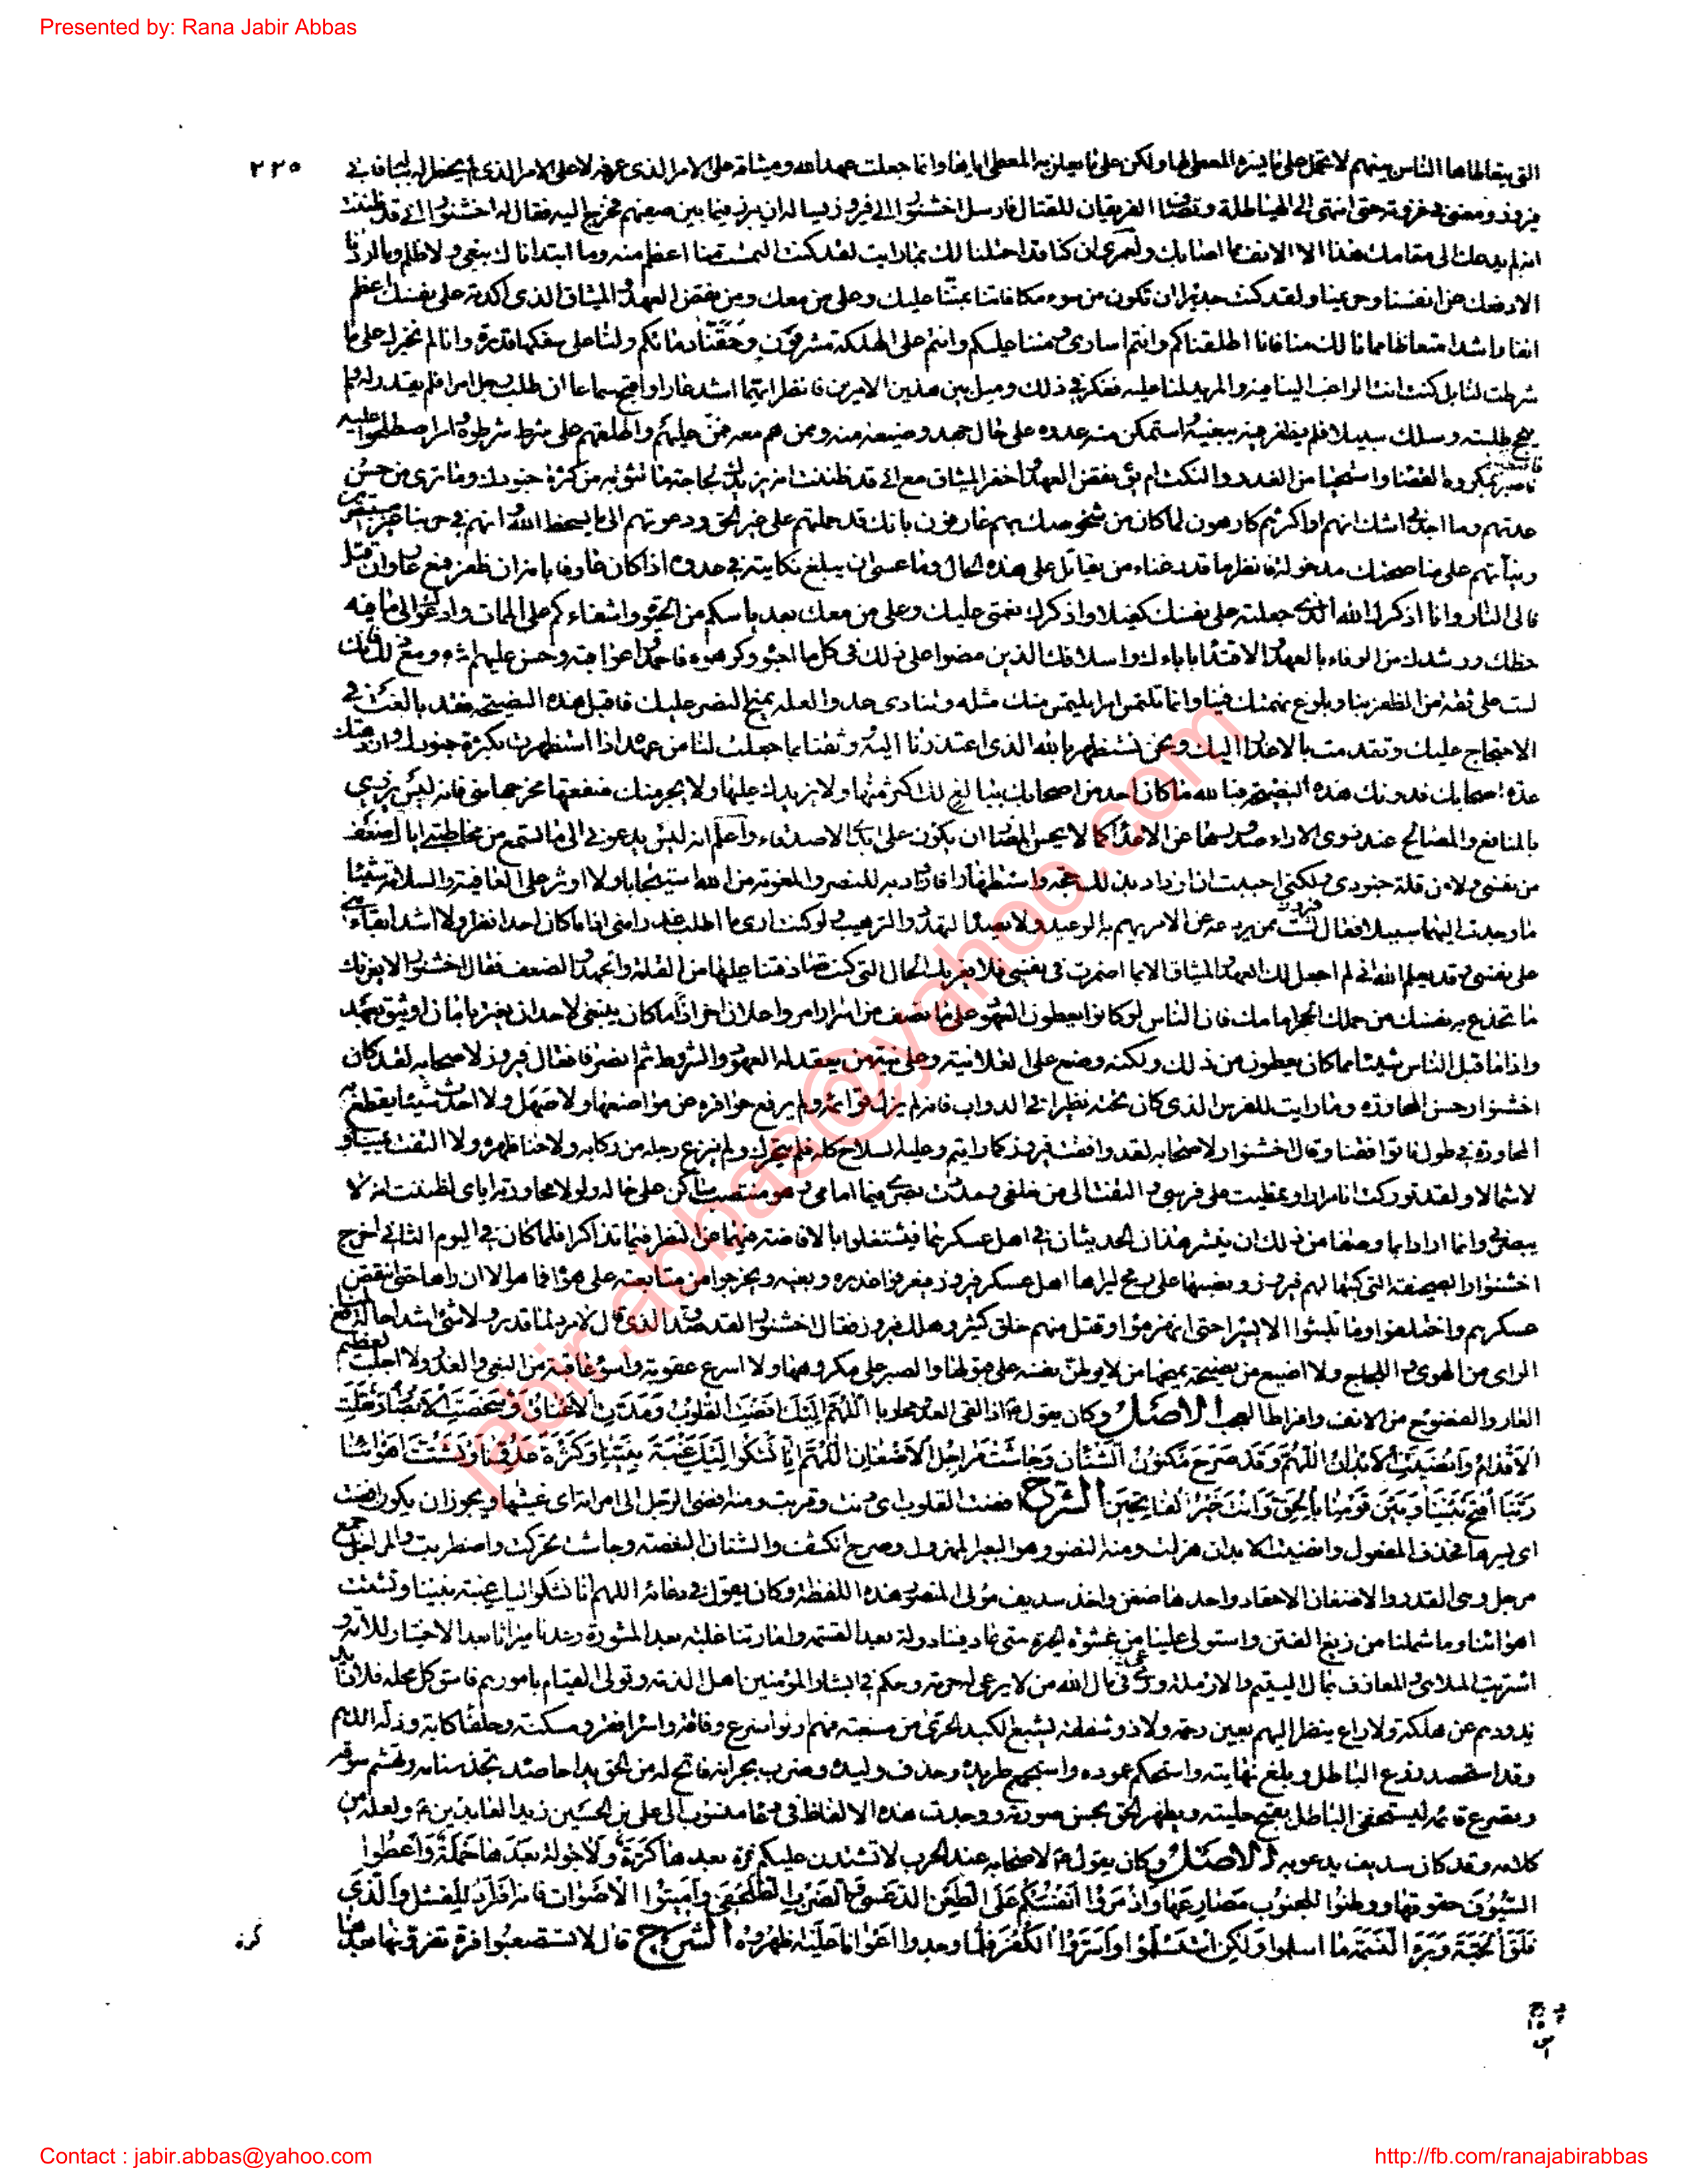 Presented by: Rana Jabir Abbas
٢٢٥
التى يتعاطاها الناس بينهم لا تحمل على ما يسره المعطى لها ولكن على ما يعلن به المعطى اياها وانما جعلت عهد الله وميثاقه على الامر الذى عرفه لا على الامر الذى لم يخطر له ببال فانى
فيروز ومضى فى غزوته حتى انتهى الى الهياطلة وتصاف الفريقان للقتال فارسل اخشنوار الى فيروز يساله ان يبرز فيما بين صفيهم فخرج اليه فقال له اخشنوار انى قد ظننت
انه لم يدعك الى مقامك هذا الا الانف مما اصابك ولعمرى لئن كنا قد احتلنا لك بما رايت لقد كنت التمست منا اعظم منه وما ابتداناك ببغى ولا ظلم وما اردنا
الا دفعك عن انفسنا وحريمنا ولقد كنت جديرا ان تكون من سوء مكافاتنا بمننا عليك وعلى من معك ومن نقض العهد والميثاق الذى اكدته على نفسك اعظم
انفا واشد امتعاضا مما نالك منا فانا اطلقناكم وانتم اسارى ومننا عليكم وانتم على الهلكة مشرفون وحقنا دماءكم ولنا على سفكها قدرة وانا لم نجبرك على ما
شرطت لنا بل كنت انت الراغب الينا فيه والمريد لنا عليه ففكر فى ذلك وميل بين هذين الامرين فانظر ايهما اشد عارا واقبح سماعا ان طلب رجل امرا فلم يقدر له ولم
ينجح طلبته وسلك سبيلا فلم يظفر فيه ببغيته واستمكن منه عدوه على حال جهد وضيعة منه وممن هم معه فمن عليهم واطلقهم على شرط شرطوه وامر اصطلحوا عليه
عدتهم وما اجدنى اشك انهم او اكثرهم كارهون لما كان من شخوصك بهم عارفون بانك قد حملتهم على غير الحق ودعوتهم الى ما يسخط الله
حظك ورشدك من الوفاء بالعهد والاقتداء باباءك واسلافك الذين مضوا على ذلك فى كل ما احبوه وكرهوه فاحمدوا عواقبه وحسن عليهم اثره ومع ذلك فانك
لست على ثقة من الظفر بنا وبلوغ نهمتك فينا وانما تلتمس امرا يلتمس منك مثله وتنادى عدوا لعله يمنح النصر عليك فاقبل هذه النصيحة فقد بالغت فى
الاحتجاج عليك وتقدمت بالاعذار اليك ونحن نستظهر بالله الذى اعتذرنا اليه ووثقنا بما جعلت لنا من عهده اذا استظهرت بكثرة جنودك وازدهتك
عدة اصحابك فدونك هذه النصيحة فبالله ما كان احد من اصحابك يبالغ لك اكثر منها ولا يزيدك عليها ولا يحرمنك منفعتها مخرجها منى فانه ليس يزرى
بالمنافع والمصالح عند ذوى الاراء صدورها عن الاعداء كما لا يحسن المضار ان يكون على ايدى الاصدقاء واعلم انه ليس يدعونى الى ما تسمع من مخاطبتى اياك ضعف
من نفسى ولا من قلة جنودى ولكنى احببت ان ازداد بذلك حجة واستظهارا فازداد به للنصر والمعونة من الله استيجابا ولا اوثر على العافية والسلامة شيئا
ما وجدت اليهما سبيلا فقال فيروز لست ممن يردعه عن الامر يهم به الوعيد ولا يصده التهدد والترهيب ولو كنت ارى ما اطلب غدرا منى اذا ما كان احد انظر ولا اشد ابقاء منى
على نفسى وقد يعلم الله انى لم اجعل لك العهد والميثاق الا بما اضمرت فى نفسى فلا يغرنك الحال التى كنت صادفتنا عليها من القلة والجهد والضعف فقال اخشنوار لا يغرنك
ما تخدع به نفسك من حملك الحجر امامك فان الناس لو كانوا يعطون العهود على ما تصف من اسرار امر واعلان اخر اذا ما كان ينبغى لاحد ان يغتر بامان او يثق بعهد
واذا ما قبل الناس شيئا مما كان يعطون من ذلك ولكنه وضع على العلانية وعلى نية من يعقد له العهود والشروط ثم انصرفا فقال فيروز لاصحابه لقد كان
اخشنوار حسن المحاورة وما رايت للفرس الذى كان تحته نظيرا فى الدواب فانه لم يزل قوائمه ولم يرفع حوافره عن مواضعها ولا صهل ولا احدث شيئا يقطع به
المحاورة فى طول ما تواقفنا وقال اخشنوار لاصحابه لقد واقفت فيروز كما رايتم وعليه السلاح كله فلم يتحرك ولم ينزع رجله من ركابه ولا حنا ظهره ولا التفت يمينا و
لا شمالا ولقد توركت انا مرارا وتمطيت على فرسى والتفت الى من خلفى ومددت بصرى فيما امامى وهو منتصب ساكن على حاله ولولا محاورته اياى لظننت انه لا
يبصرنى وانما ارادا بما وصفا من ذلك ان ينشر هذان الحديثان فى اهل عسكريهما فيشتغلوا بالافاضة فيهما عن النظر فيما تذاكرا فلما كان فى اليوم الثانى اخرج
اخشنوار الصحيفة التى كتبها لهم فيروز ونصبها على رمح ليراها اهل عسكر فيروز فيعرفوا غدره وبغيه ويخرجوا من متابعته على هواه فما هو الا ان راوها حتى انتقض
عسكرهم واختلفوا وما تلبثوا الا يسيرا حتى انهزموا وقتل منهم خلق كثير وهلك فيروز فقال اخشنوار لقد صدق الذى قال لا مرد لما قدر ولا شئ اشد احالة لمنافع
الراى من الهوى واللجاج ولا اضيع من نصيحة يمنحها من لا يوطن نفسه على قبولها والصبر على مكروهها ولا اسرع عقوبة واسوء عاقبة من البغى والغدر ولا اجلب لعظيم
العار والفضوح من الانف وافراط العجب الاصل وكان يقول ع اذا لقى العدو محاربا اللهم اليك افضت القلوب ومدت الاعناق وشخصت الابصار ونقلت
الاقدام وانضيت الابدان اللهم قد صرح مكنون الشنان وجاشت مراجل الاضغان اللهم انا نشكو اليك غيبة نبينا وكثرة عدونا وتشتت اهوائنا
ربنا افتح بيننا وبين قومنا بالحق وانت خير الفاتحين الشرح افضت القلوب اى دنت وقربت ومنه افضى الرجل الى امراته اى غشيها ويجوز ان يكون افضت
اى بسرها فحذف المفعول وانضيت الابدان هزلت ومنه النضو وهو البعير المهزول وصرح انكشف والشنان البغضة وجاشت تحركت واضطربت والمراجل جمع
مرجل وهى القدر والاضغان الاحقاد واحدها ضغن واخذ سديف مولى المنصور هذه اللفظة وكان يقول فى دعائه اللهم انا نشكو اليك غيبة نبينا وتشتت
اهوائنا وما شملنا من زيغ الفتن واستولى علينا من غشوة الحيرة حتى عاد فيئنا دولة بعد القسمة وامارتنا غلبة بعد المشورة وعدنا ميراثا بعد الاختيار للامة و
اشتريت الملاهى والمعازف بمال اليتيم والارملة ورعى فى مال الله من لا يرعى له حرمة وحكم فى ابشار المؤمنين اهل الذمة وتولى القيام بامورهم فاسق كل محلة فلا ذائد
يذودهم عن هلكة ولا راع ينظر اليهم بعين رحمة ولا ذو شفقة يشبع الكبد الحرى من مسغبة فهم اولوا ضرع وفاقة واسراء فقر ومسكنة وحلفاء كابة وذلة اللهم
وقد استحصد زرع الباطل وبلغ نهايته واستحكم عموده واستجمع طريده وحذف وليده وضرب بجرانه فاتح له من الحق يدا حاصدة تجذ سنامه وتهشم سوقه
وتصرع قائمه ليستخفى الباطل بقبح حليته ويظهر الحق بحسن صورته ووجدت هذه الالفاظ فى دعاء منسوب الى على بن الحسين زين العابدين ع ولعله من
كلامه وقد كان سديف يدعو به الاصل وكان يقول ع لاصحابه عند الحرب لا تشتدن عليكم فرة بعدها كرة ولا جولة بعدها حملة واعطوا
السيوف حقوقها ووطنوا للجنوب مصارعها واذمروا انفسكم على الطعن الدعسى والضرب الطلحفى واميتوا الاصوات فانه اطرد للفشل والذى
فلق الحبة وبرء النسمة ما اسلموا ولكن استسلموا واسروا الكفر فلما وجدوا اعوانا عليه اظهروه الشرح قال لا تستصعبوا فرة تفرونها بعدها
كرة
jabir.abbas@yahoo.com
Contact : jabir.abbas@yahoo.com
http://fb.com/ranajabirabbas